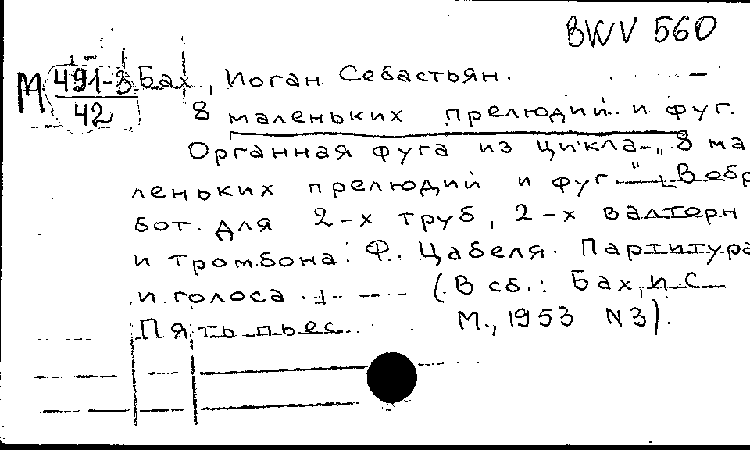 BWV 560
М 491-3 Бах, Иоган Себастьян.
42
8 маленьких прелюдий и фуг.
Органная фуга из цикла „8 ма
леньких прелюдий и фуг". В обр
бот. для 2-х труб, 2-х валторн
и тромбона. Ф. Цабеля. Партитура
и голоса. (В сб.: Бах, И.С
Пять пьес. М., 1953 N3).